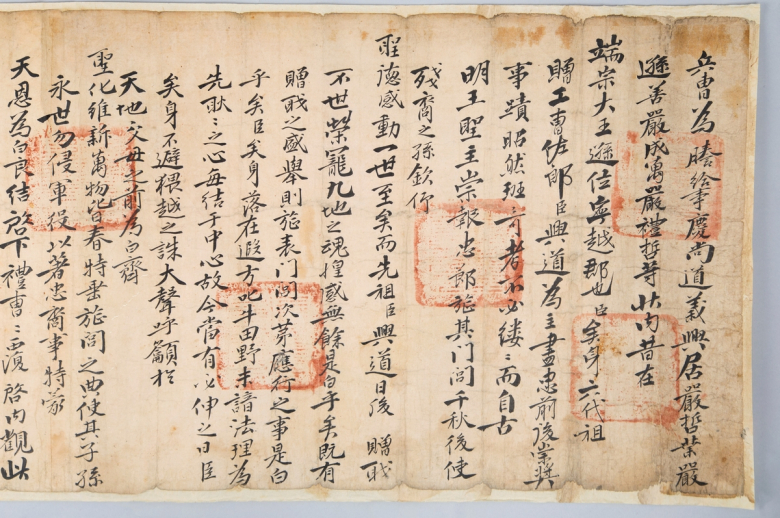 兵曹為謄給事慶尚道義興居嚴哲業嚴
遜善嚴成萬嚴禮哲等狀內昔在
端宗大王遜位寧越郡也臣矣身六代祖
贈工曹佐郎臣興道為主盡忠前後崇奬
事蹟昭然班班可考不必縷縷而自古
明王聖主崇報忠節旌其門閭千秋後使
殘裔之孫欽行
聖德感動一世至矣而先祖臣興道日後 贈職
不世榮寵九地之魂惶感無餘是白乎矣既有
贈職之盛舉則旌表門閭次第應行之事是白
乎矣臣矣身落在遐方叱斗田野未諳法理為
先耿耿之心每結于中心故今當有必伸之日臣
矣身不避猥越之誅大聲呼籲於
天地父母之前為白齊
聖化維新萬物皆春特垂旌閭之典使其子孫
永世勿侵軍役以著忠裔事特蒙
天恩為白良結啓下禮曹禮曹覆啓內觀此